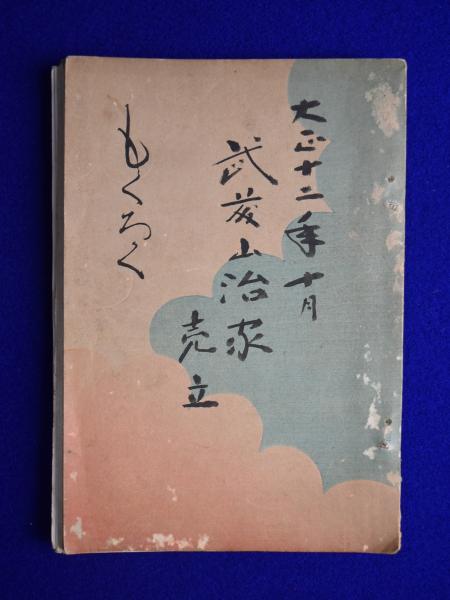 大正十二年十月
武藤山治家
売立
もくろく